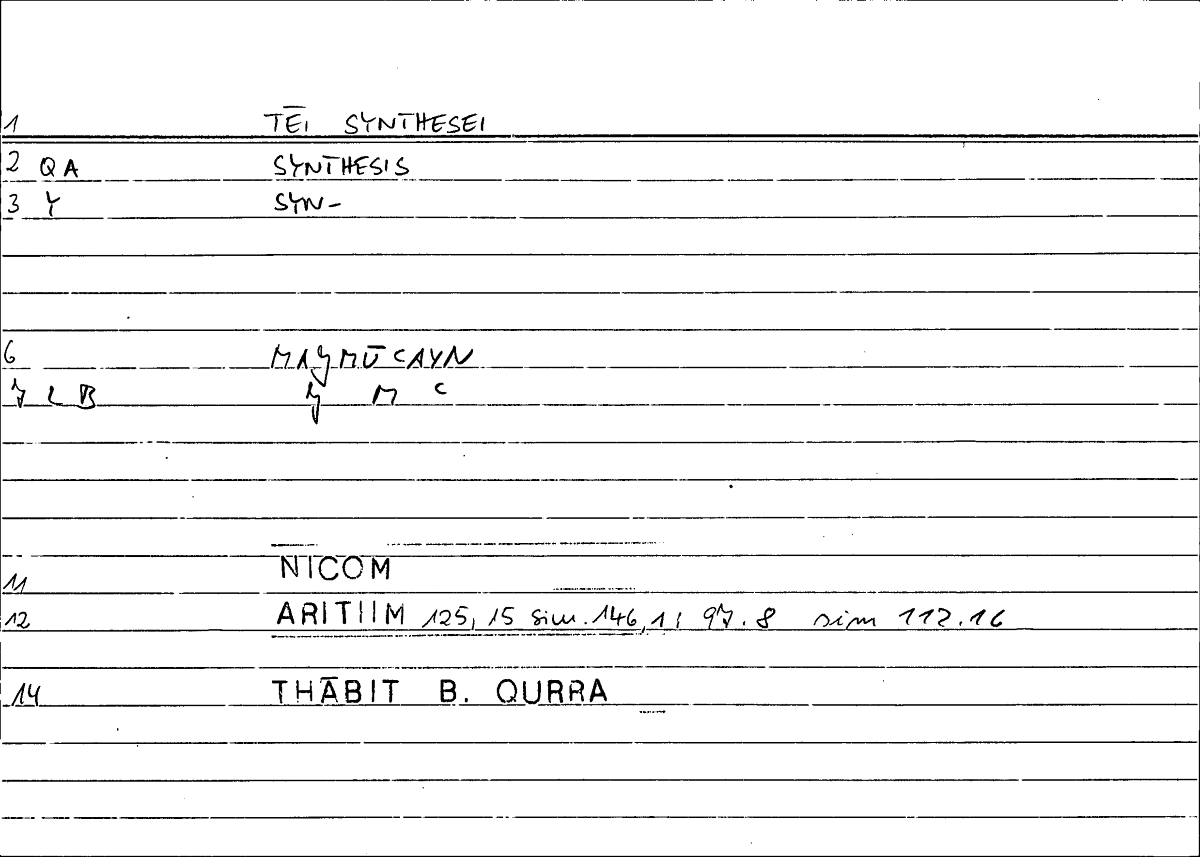 1 TĒI SYNTHESEI
2 QA SYNTHESIS
3 Y SYN-
6 MAƷMŪCAYN
7 LB Ʒ M C
NICOM
11
12 ARITIIM 125, 15 sim. 146, 1; 97.8 sim 112.16
14 THĀBIT B. QURRA